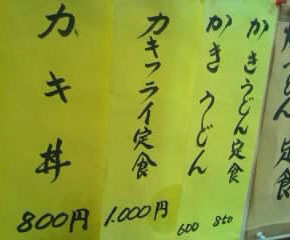 カキうどん定食
かきうどん定食
850
かきうどん
600
カキフライ定食
1.000円
カキ丼
800円